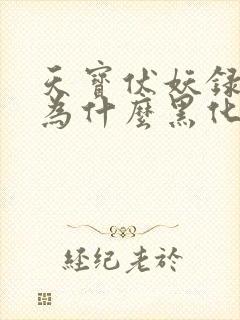 天寶伏妖録
為什麼黑化
經纪老於